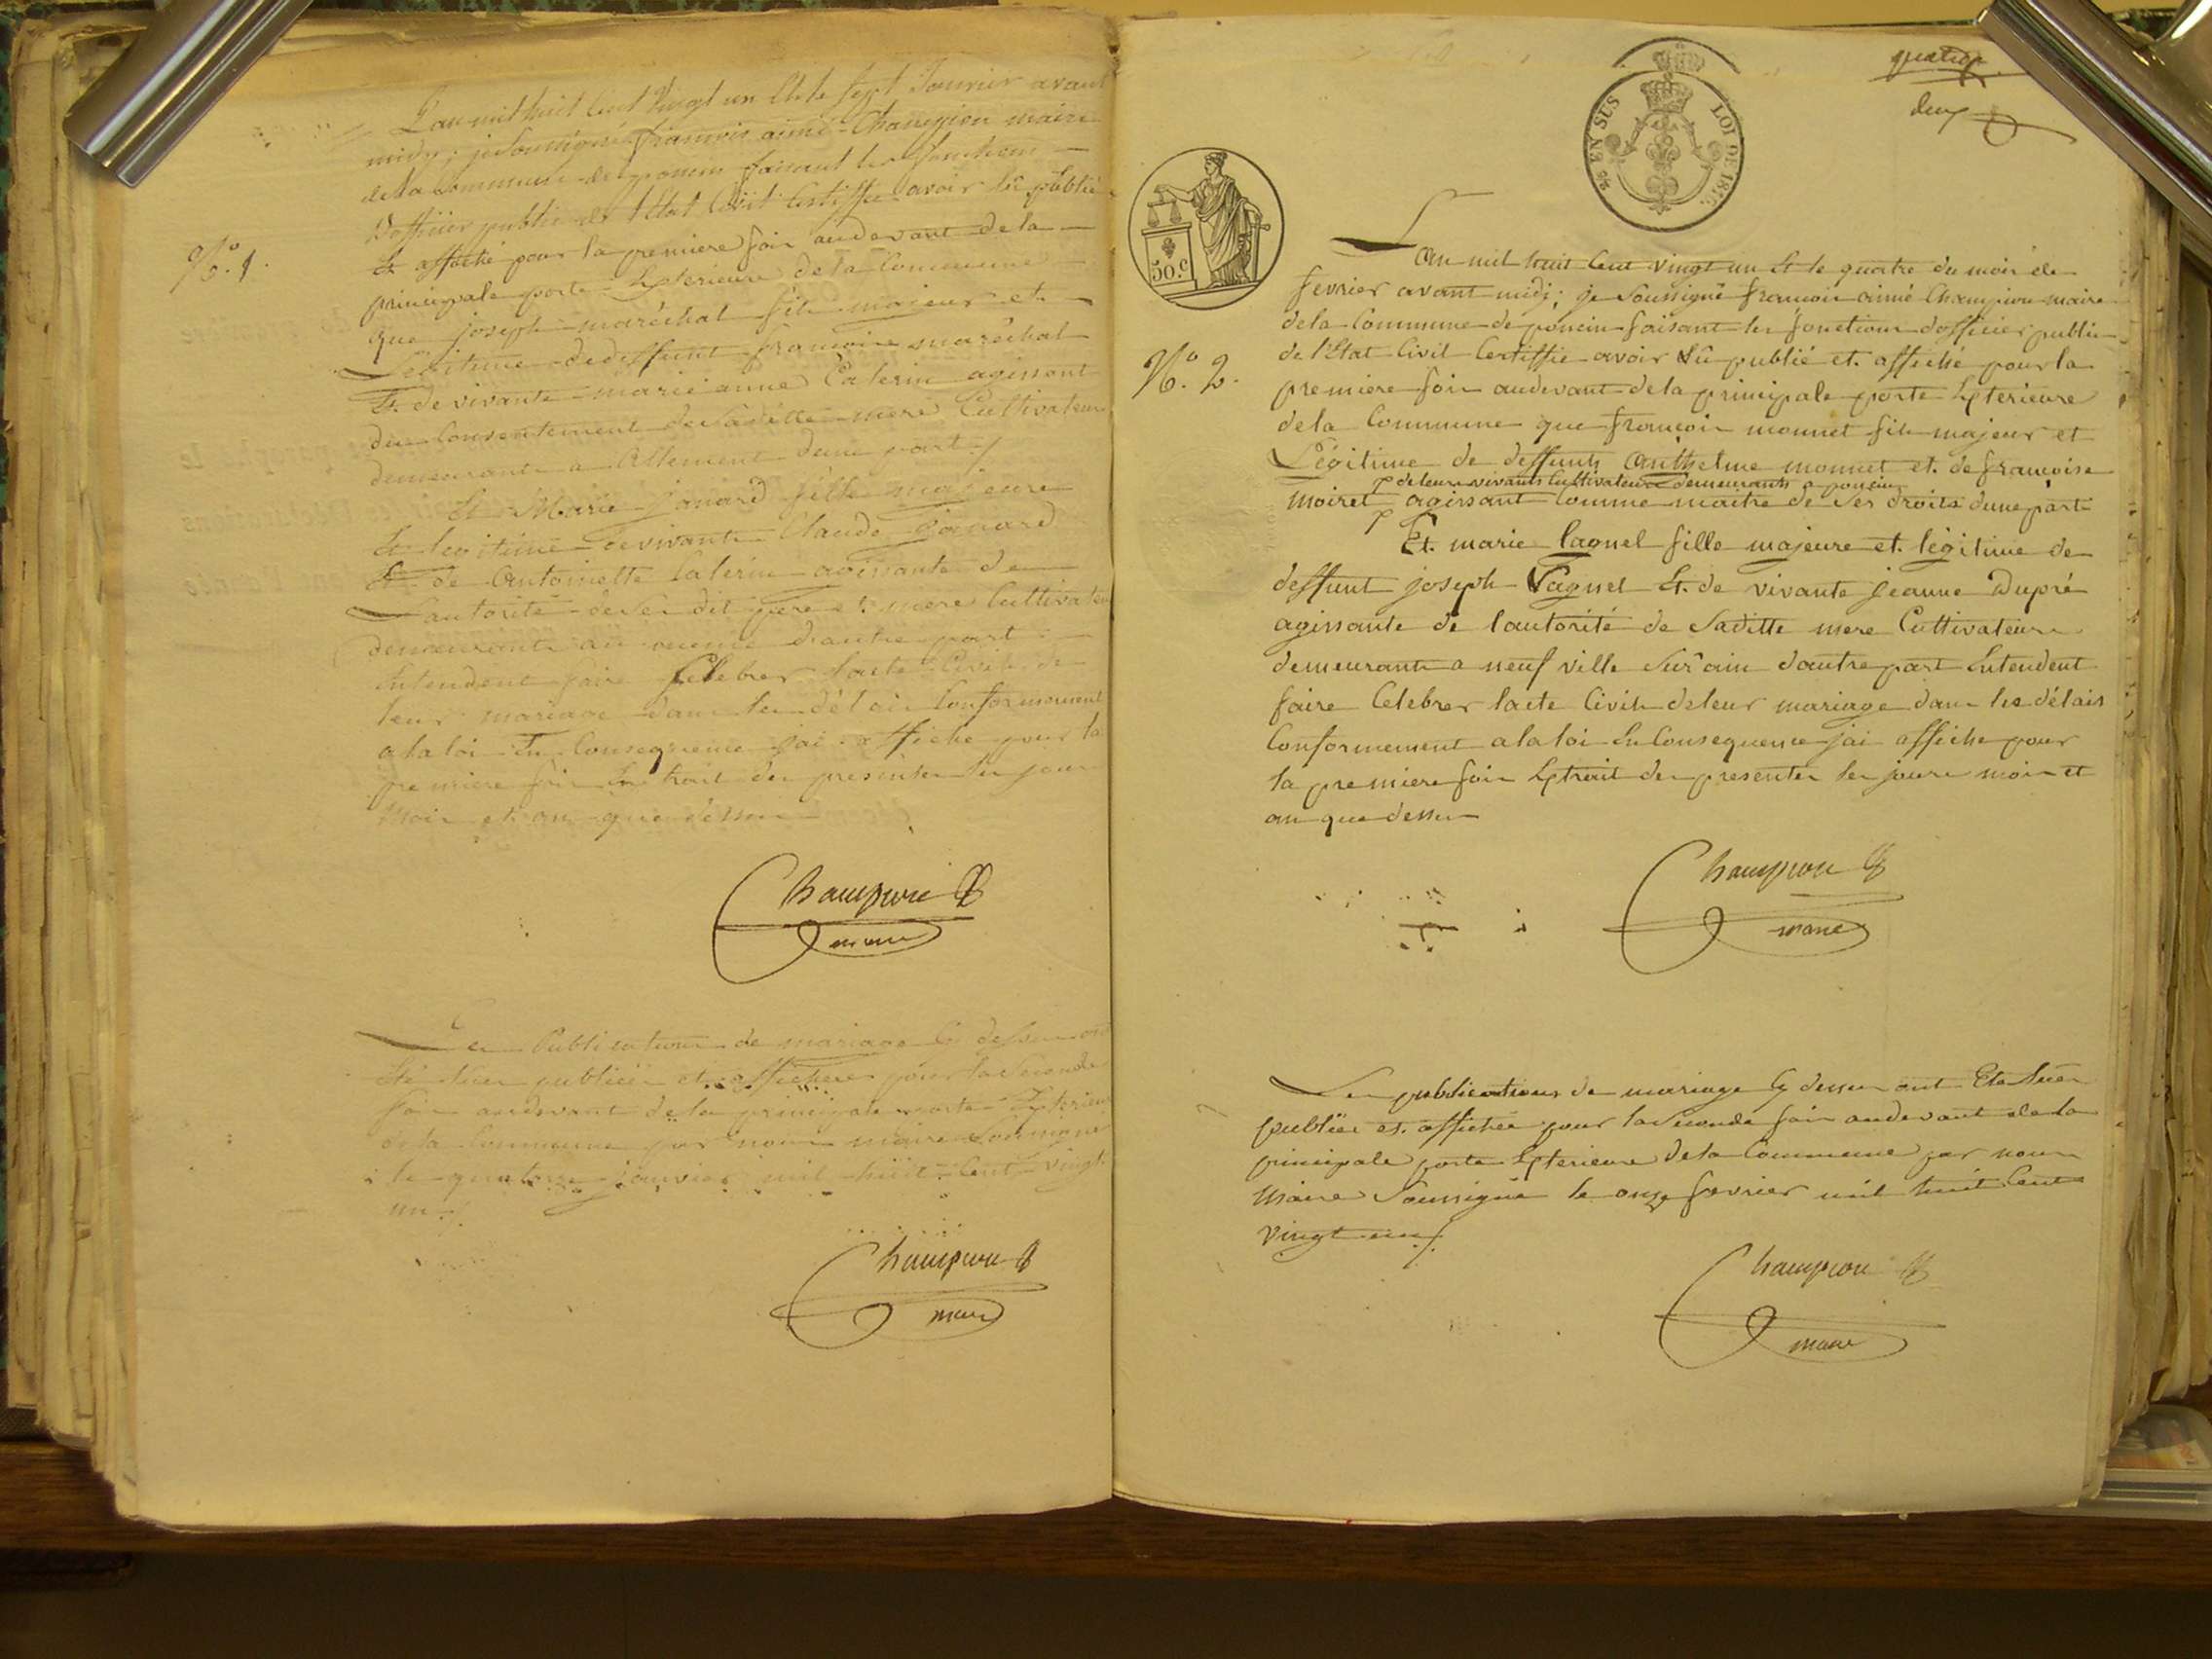 L'an mil huit Cent Vingt un Et le Sept Janvier avant
midy; je Soussigné françois aimé Champion maire
de la Commune de poncin faisant les fonctions
D'officier public de l'Etat Civil Certiffie avoir lû publié
Et affiché pour la premiere fois audevant de la
N.º 1.
principale porte Exterieure de la Commune
que joseph maréchal fils majeur et
Legitime de deffunt françois maréchal
Et de vivante marie anne Caterin agissant
du Consentement de Saditte mere Cultivateurs
demeurants a allement dune part
Et Marie janard fille majeure
Et legitime de vivants Claude janard
Et de Antoinette Caterin agissante de
L'autorité de Ses dit pere et mere Cultivateurs
demeurants au d'autre part
Entendent faire Célebrer l'acte Civil de
leur mariage dans les délais Conformement
a la loi En Consequence jai affiché pour la
premiere fois Extrait des presentes les jour
Mois et an que dessus
Champion
maire
Les Publications de mariage Cy dessus ont
Eté lues publiées et affichées pour la Seconde
fois audevant de la principale porte Exterieure
de la Commune par nous maire Soussigné
le quatorze janvier mil huit Cent vingt
un
Champion
maire
quatre
deux
25 C. EN SUS LOI DE 1816.
50.c
L'an mil huit Cent vingt un Et le quatre du mois de
fevrier avant midj; je Soussigné françois aimé Champion maire
de la Commune de poncin faisant les fonctions d'officier public
de l'Etat Civil Certiffie avoir lû publié et affiché pour la
N.º 2.
premiere fois audevant de la principale porte Exterieure
de la Commune que françois monnet fils majeur et
Légitime de deffunts Anthelme monnet et de françoise
de leurs vivants Cultivateurs demeurants a poncin
moiret agissant Comme maitre de Ses droits dune part
Et marie lagnel fille majeure et legitime de
deffunt joseph Lagnel Et de vivante jeanne Dupré
agissante de l'autorité de Saditte mere Cultivateurs
demeurants a neuf ville Sur ain d'autre part Entendent
faire Celebrer lacte Civil de leur mariage dans les délais
Conformement a la loi En Consequence jai affiché pour
la premiere fois Extrait des presentes les jour mois et
an que dessus
Champion
maire
Les publications de mariage Cy dessus ont Eté lues
publiées et affichées pour la Seconde fois audevant de la
principale porte Exterieure de la Commune par nous
Maire Soussigné le onze fevrier mil huit Cent
vingt un
Champion
maire